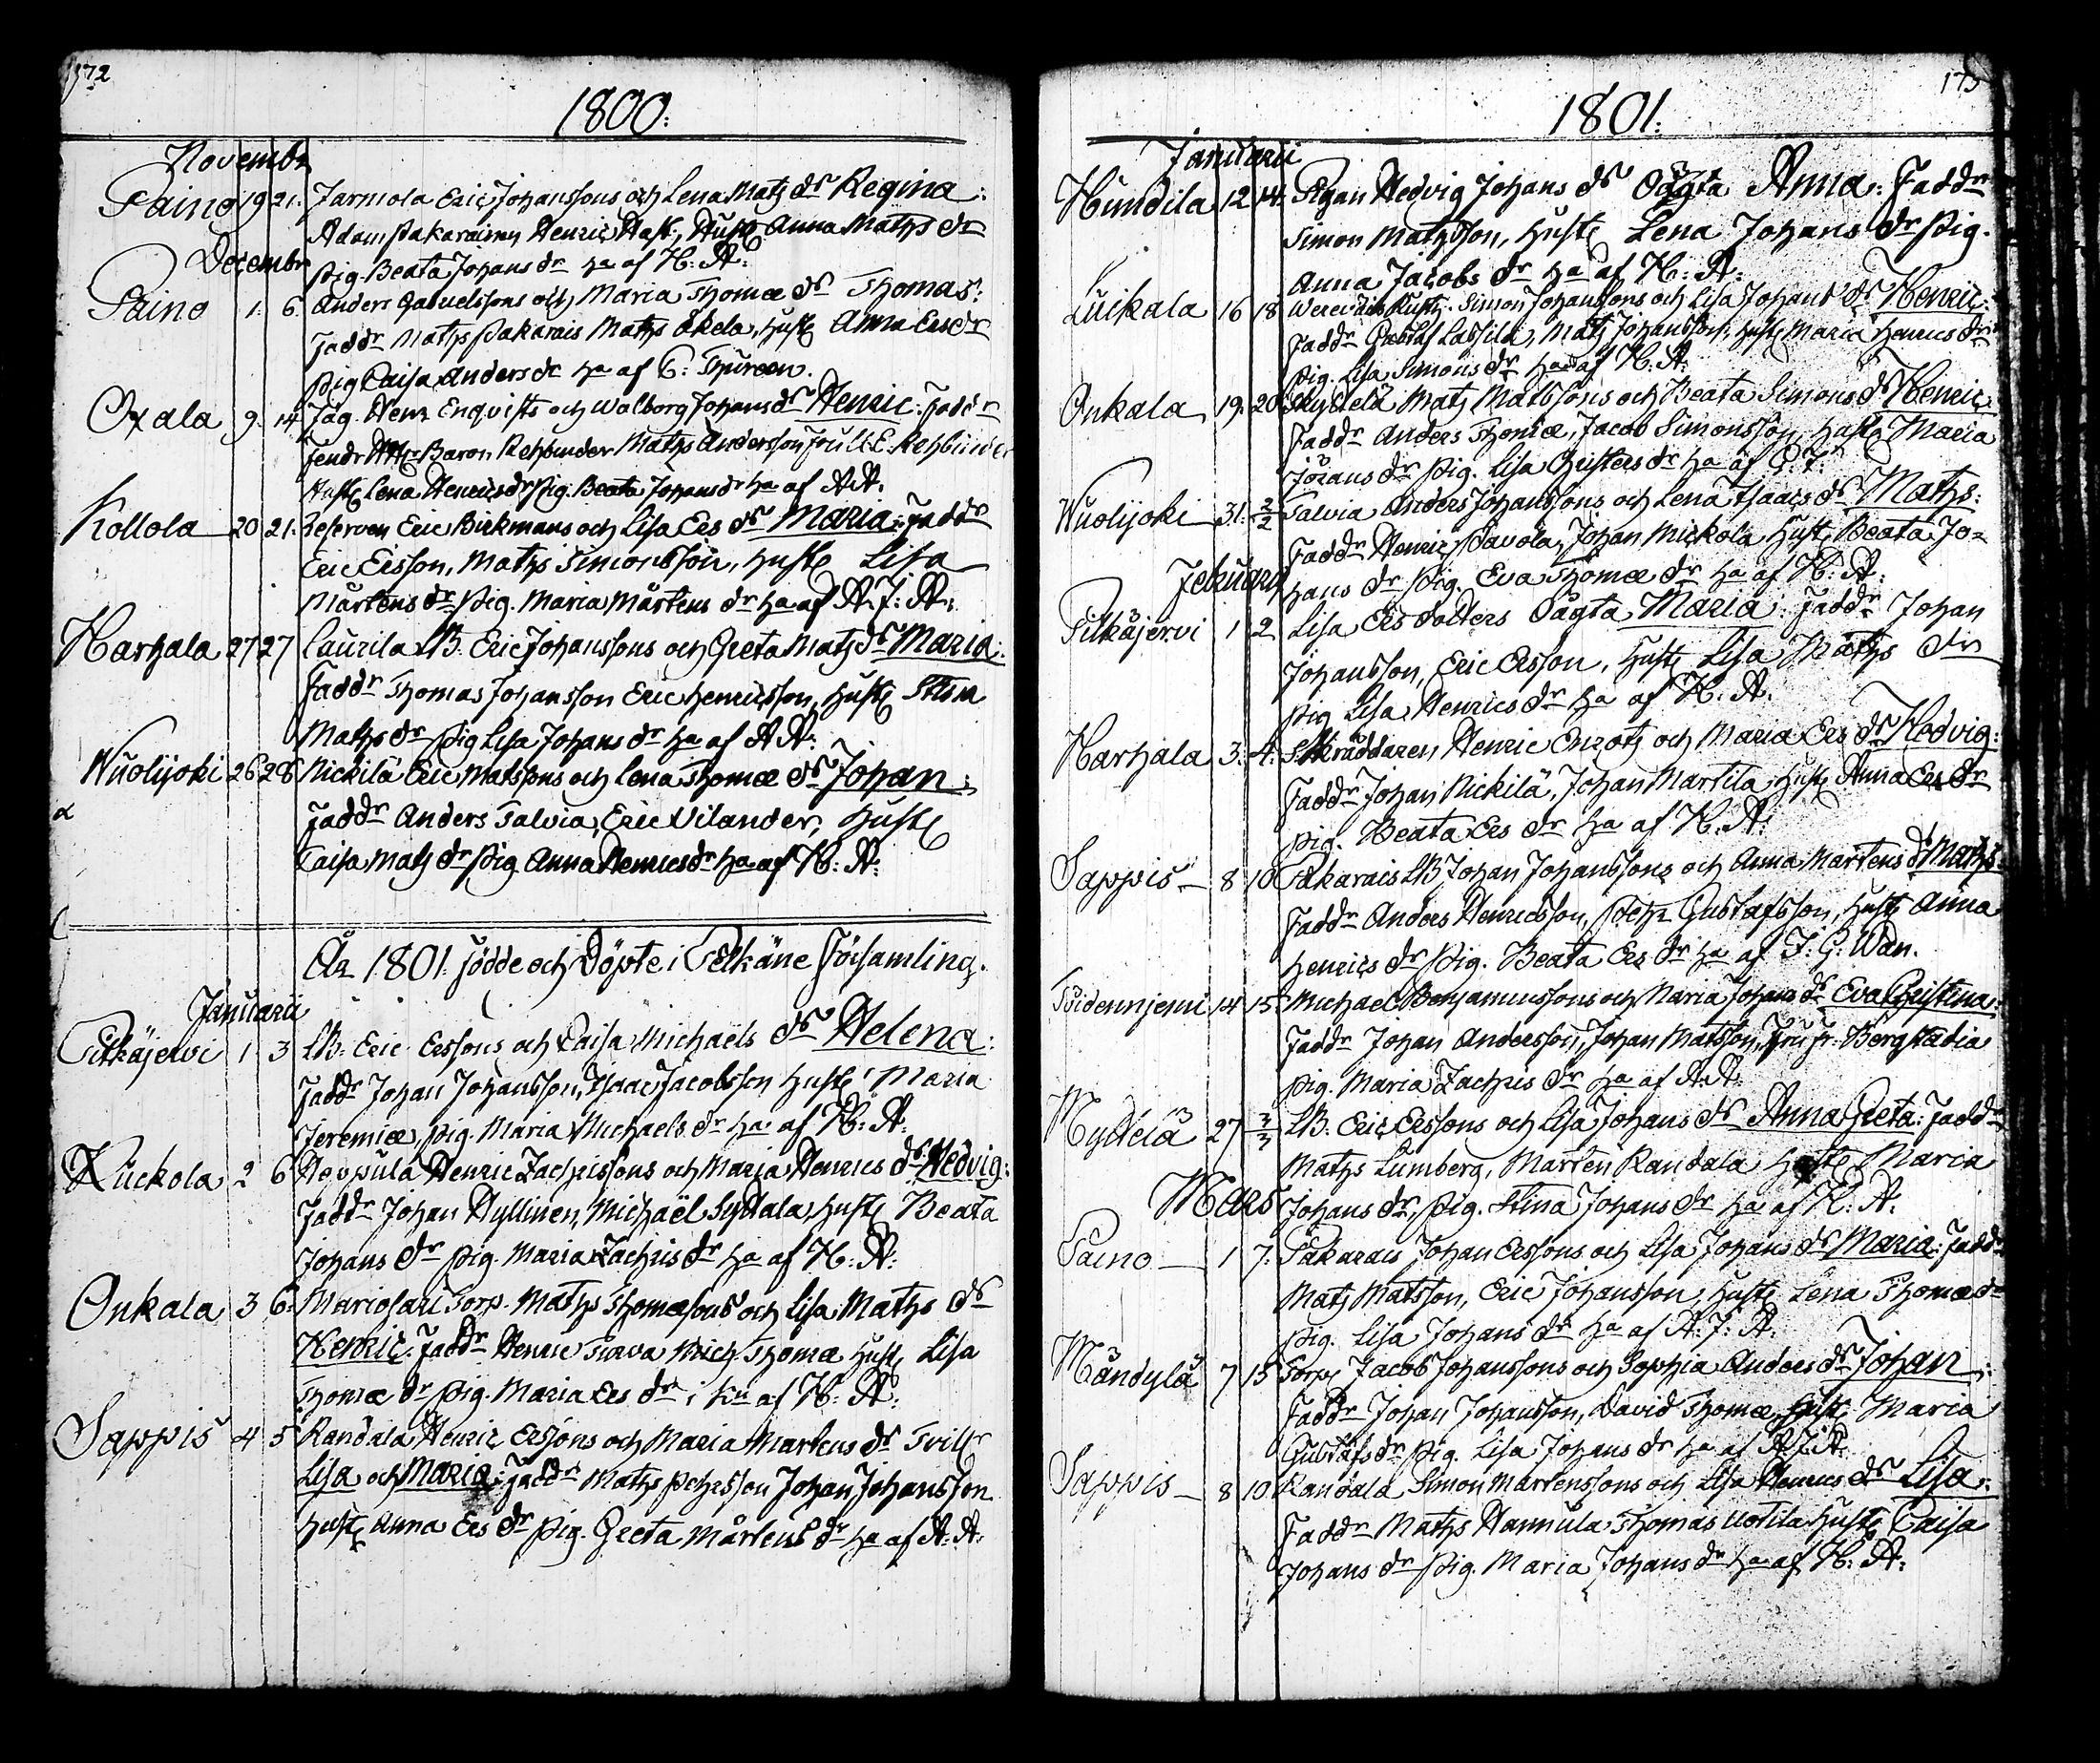 172
1800:
Novembr
Paino 19 21. Jarmola Eric Johanssons och Lena Matz dr Regina:
Adam Pakarainen Henric Hast, Hustr Anna Mathsdr
Decembr
Pig. Beata Johansdr ha af H: A:
Paino 1. 6. Anders Gabrielssons och Maria Thomæ dr Thomas:
Faddr Maths Pakarais Maths Äkela, Hustr Anna Ersdr
Pig Caisa Andersdr ha af C: Thureen.
Oxala 9. 14 Jäg. Henr Enqvists och Walborg Johansdr Henric: Faddr
Fendr Baron Rehbinder Maths Andersson E: Rehbinder
Hustr Lena Henricsdr Pig. Beata Johansdr ha af A A:
Kollola 20 21. Reserven Eric Birkmans och Lisa Ers dr Maria: Faddr
Eric Ersson, Maths Simonsson, Hustr Lisa
Mårtens dr Pig. Maria Mårtens dr ha af A: J: A:
Harhala 27 27 Laurila LB. Eric Johanssons och Greta Matz dr Maria:
Faddr Thomas Johansson Eric Henricsson, Hustr Stina
Mathsdr Pig Lisa Johans dr ha af A A:
Wuolijoki 26 28 Nickilä Eric Matssons och Lena Thomæ dr Johan:
Faddr Anders Talvia, Eric Vilander, Hustr
Caisa Matz dr Pig Anna Henricsdr ha af H: A:
År 1801. födde och Döpte i Pelkäne Församling.
Januarii
Pitkäjervi 1 3 LB. Eric Erssons och Caisa Michaels dr Helena:
Faddr Johan Johansson, Isaac Jacobsson Hustr Maria
Jeremiæ, Pig. Maria Michaels dr ha af H: A:
Kuckola 2 6 Hoppula Henric Zachrissons och Maria Henrics dr Hedvig:
Faddr Johan Hyllinen, Michaël Sydtala, Hustr Beata
Johans dr Pig. Maria Zachris dr ha af H: A:
Onkala 3 6. Mariosari Torp. Maths Thomæsons och Lisa Maths dr
Henric. Faddr Henric Mich. Thomæ Hustr Lisa
Thomæ dr Pig. Maria Ers dr i ha af H: A:
Sappis 4 5 Randala Henric Erssons och Maria Martens dr Tvillr
Lisa och Maria: Faddr Maths Pehrsson Johan Johansson
Hustr Anna Ers dr Pig. Greta Mårtens dr ha af A: A:
173
1801:
Januarii
Hundila 12 14. Pigan Hedvig Johans dr Oägta Anna: Faddr
Simon Mathsson, Hustr Lena Johans dr Pig.
Anna Jacobs dr ha af H: A:
Luikala 16 18 Simon Johanssons och Lisa Johans dr Henric:
Faddr Gustaf Lassila, Matz Johansson, Hustr Maria Henrics dr
Pig. Lisa Simons dr ha af H: A:
Onkala 19. 20 Skyttelä Matz Matssons och Beata Simons dr Henric
Faddr Anders Thomæ, Jacob Simonsson, Hustr Maria
Johans dr Pig. Lisa Christers dr ha af C. T.
Wuolijoki 31. 2/2 Talvia Anders Johanssons och Lena Isaacs dr Maths:
Faddr Henric Pavola, Johan Mickola Hustr Beata Jo=
Februarii
hans dr Pig. Eva Thomæ dr ha af H: A:
Pitkäjervi 1 2 Lisa Ers dotters Oägta Maria: Faddr Johan
Johansson, Eric Ersson, Hustr Lisa Maths dr
Pig Lisa Henrics dr ha af H: A:
Harhala 3. 4: Skräddaren Henric Enrotz och Maria Ers dr Hedvig:
Faddr Johan Nickilä, Johan Martila, Hustr Anna Ers dr
Pig. Beata Ers dr ha af H. A:
Sappis 8 10 Pakarais LB Johan Johanssons och Anna Martens dr Maths:
Faddr Anders Henricsson, Pehr Gustafsson, Hustr Anna
Henrics dr Pig. Beata Ers dr ha af J. G: Wan.
14 15 Michael Benjaminssons och Maria Johans dr Eva Christina:
Faddr Johan Andersson, Johan Matsson, Fru Bergstadia
Pig. Maria Zachris dr ha af A. A:
27 3/3 LB. Eric Erssons och Lisa Johans dr Anna Greta: Faddr
Maths Lumberg, Marten Randala Hustr Maria
Mars
Johans dr, Pig. Stina Johans dr ha af H. A:
Paino 1 7. Pakarais Johan Erssons och Lisa Johans dr Maria: Faddr
Matz Matsson, Eric Johansson, Hustr Lena Thomædr
Pig. Lisa Johans dr ha af A: J: A:
Mändylä 7 15 Torp Jacob Johanssons och Sophia Anders dr Johan:
Faddr Johan Johansson, David Thomæ, Hustr Maria
Gustafs dr Pig. Lisa Johans dr ha af A J A:
Sappis 8 10 Randala Simon Martenssons och Lisa Henrics dr Lisa:
Faddr Maths Hannula Thomas Uotila Hustr Caisa
Johans dr Pig. Maria Johans dr ha af H: A: